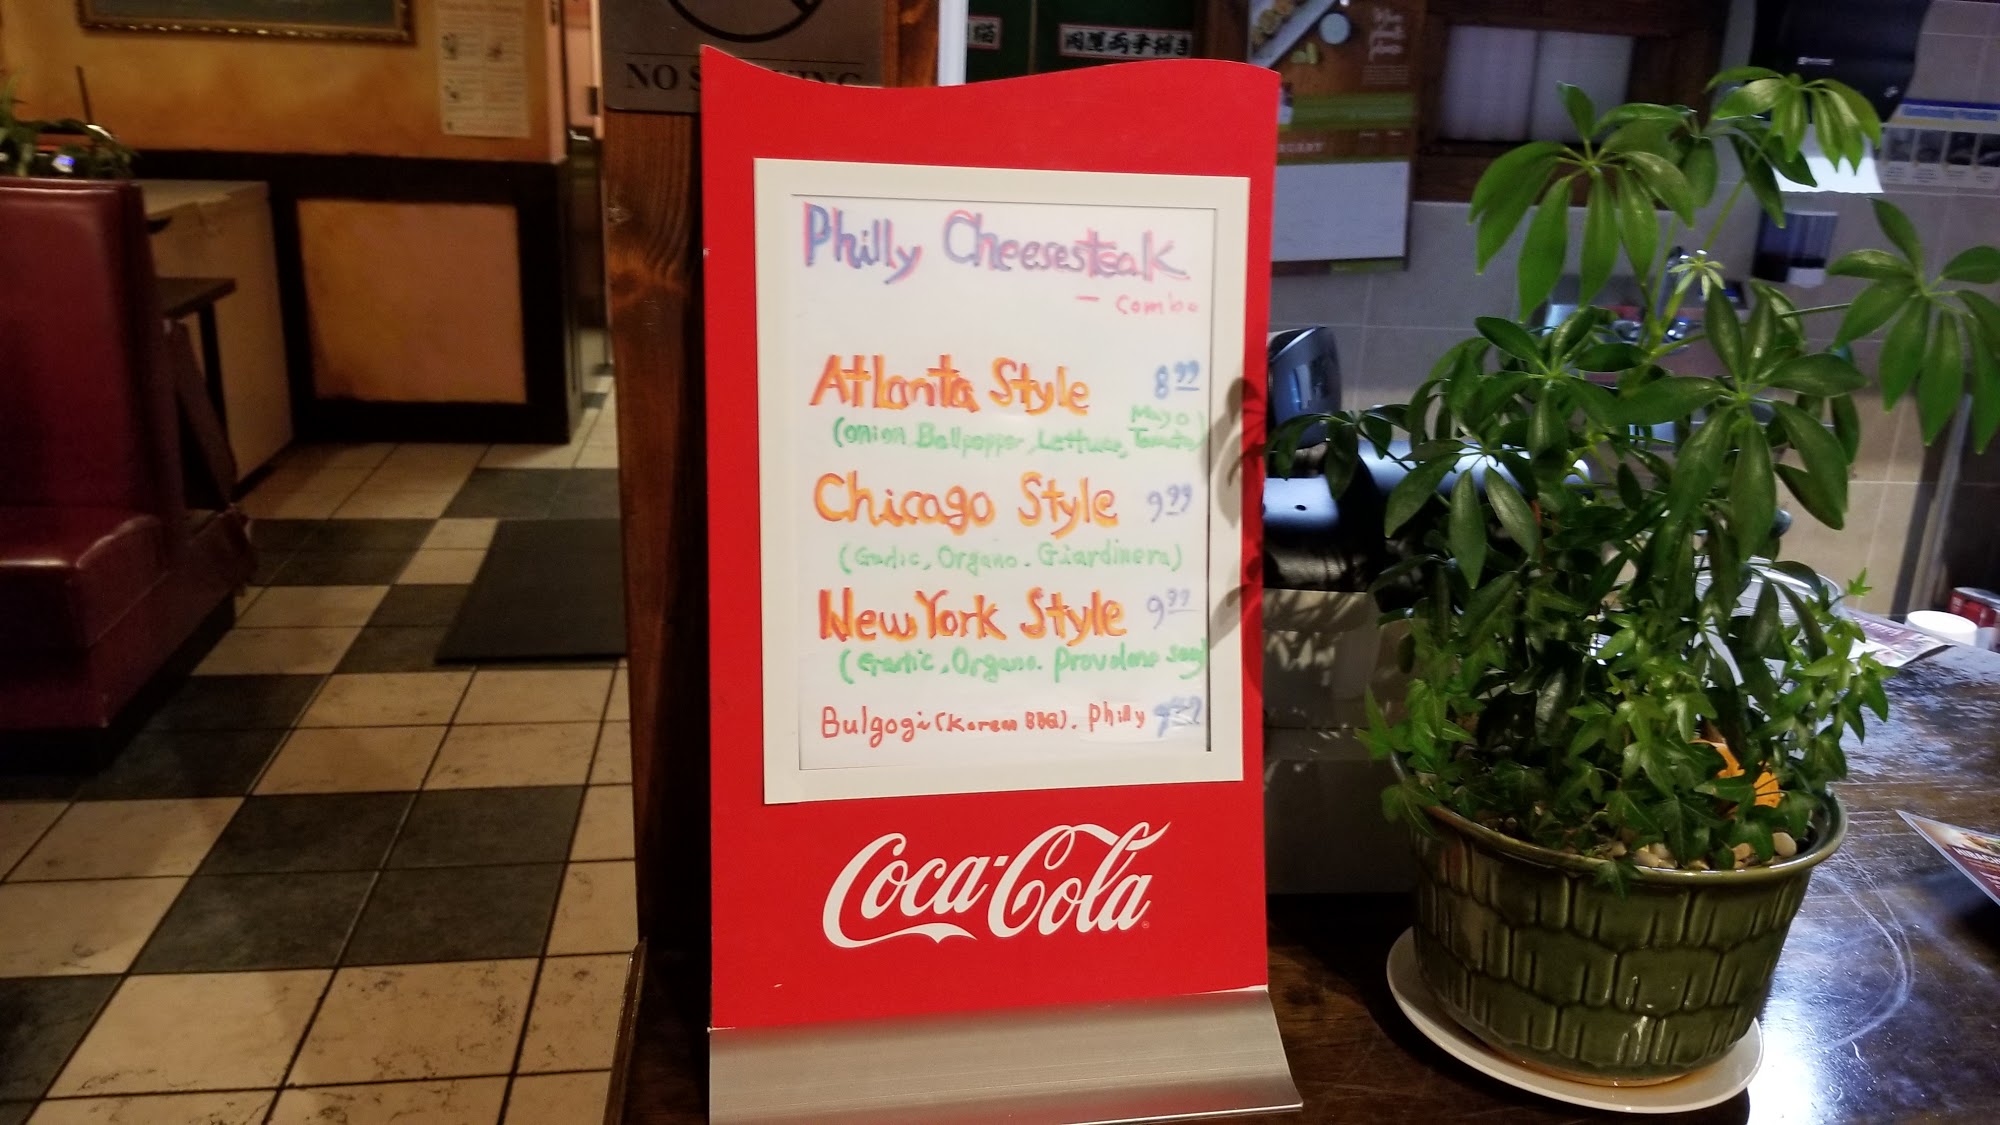 NO
同薦両手描き
Philly Cheesesteak
- Combo
Atlanta Style 8 99
Mayo
(Onion. Bellpepper, Lettuce, Tomato)
Chicago Style 9 99
(Garlic, Organo. Giardinera)
New York Style 9 99
(Garlic, Organo. Provolone
Bulgogi (Korean BBQ). Philly
Coca-Cola